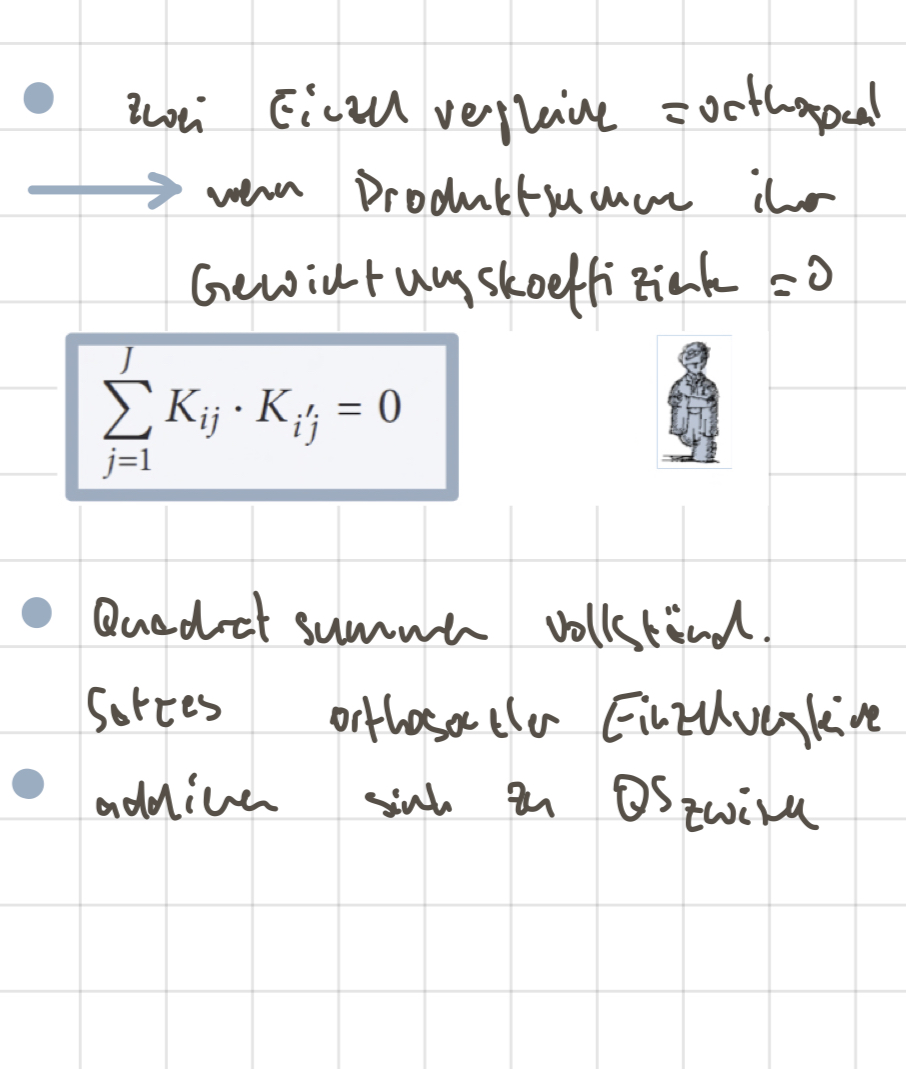 zwei Einzelvergleiche = orthogonal
wenn Produktsumme ihrer
Gewichtungskoeffiziente = 0
J
∑ K_{ij} · K_{i'j} = 0
j=1
Quadratsummen vollständ.
Satzes orthogonaler Einzelvergleiche
addieren sich zu QS_{zwisch}